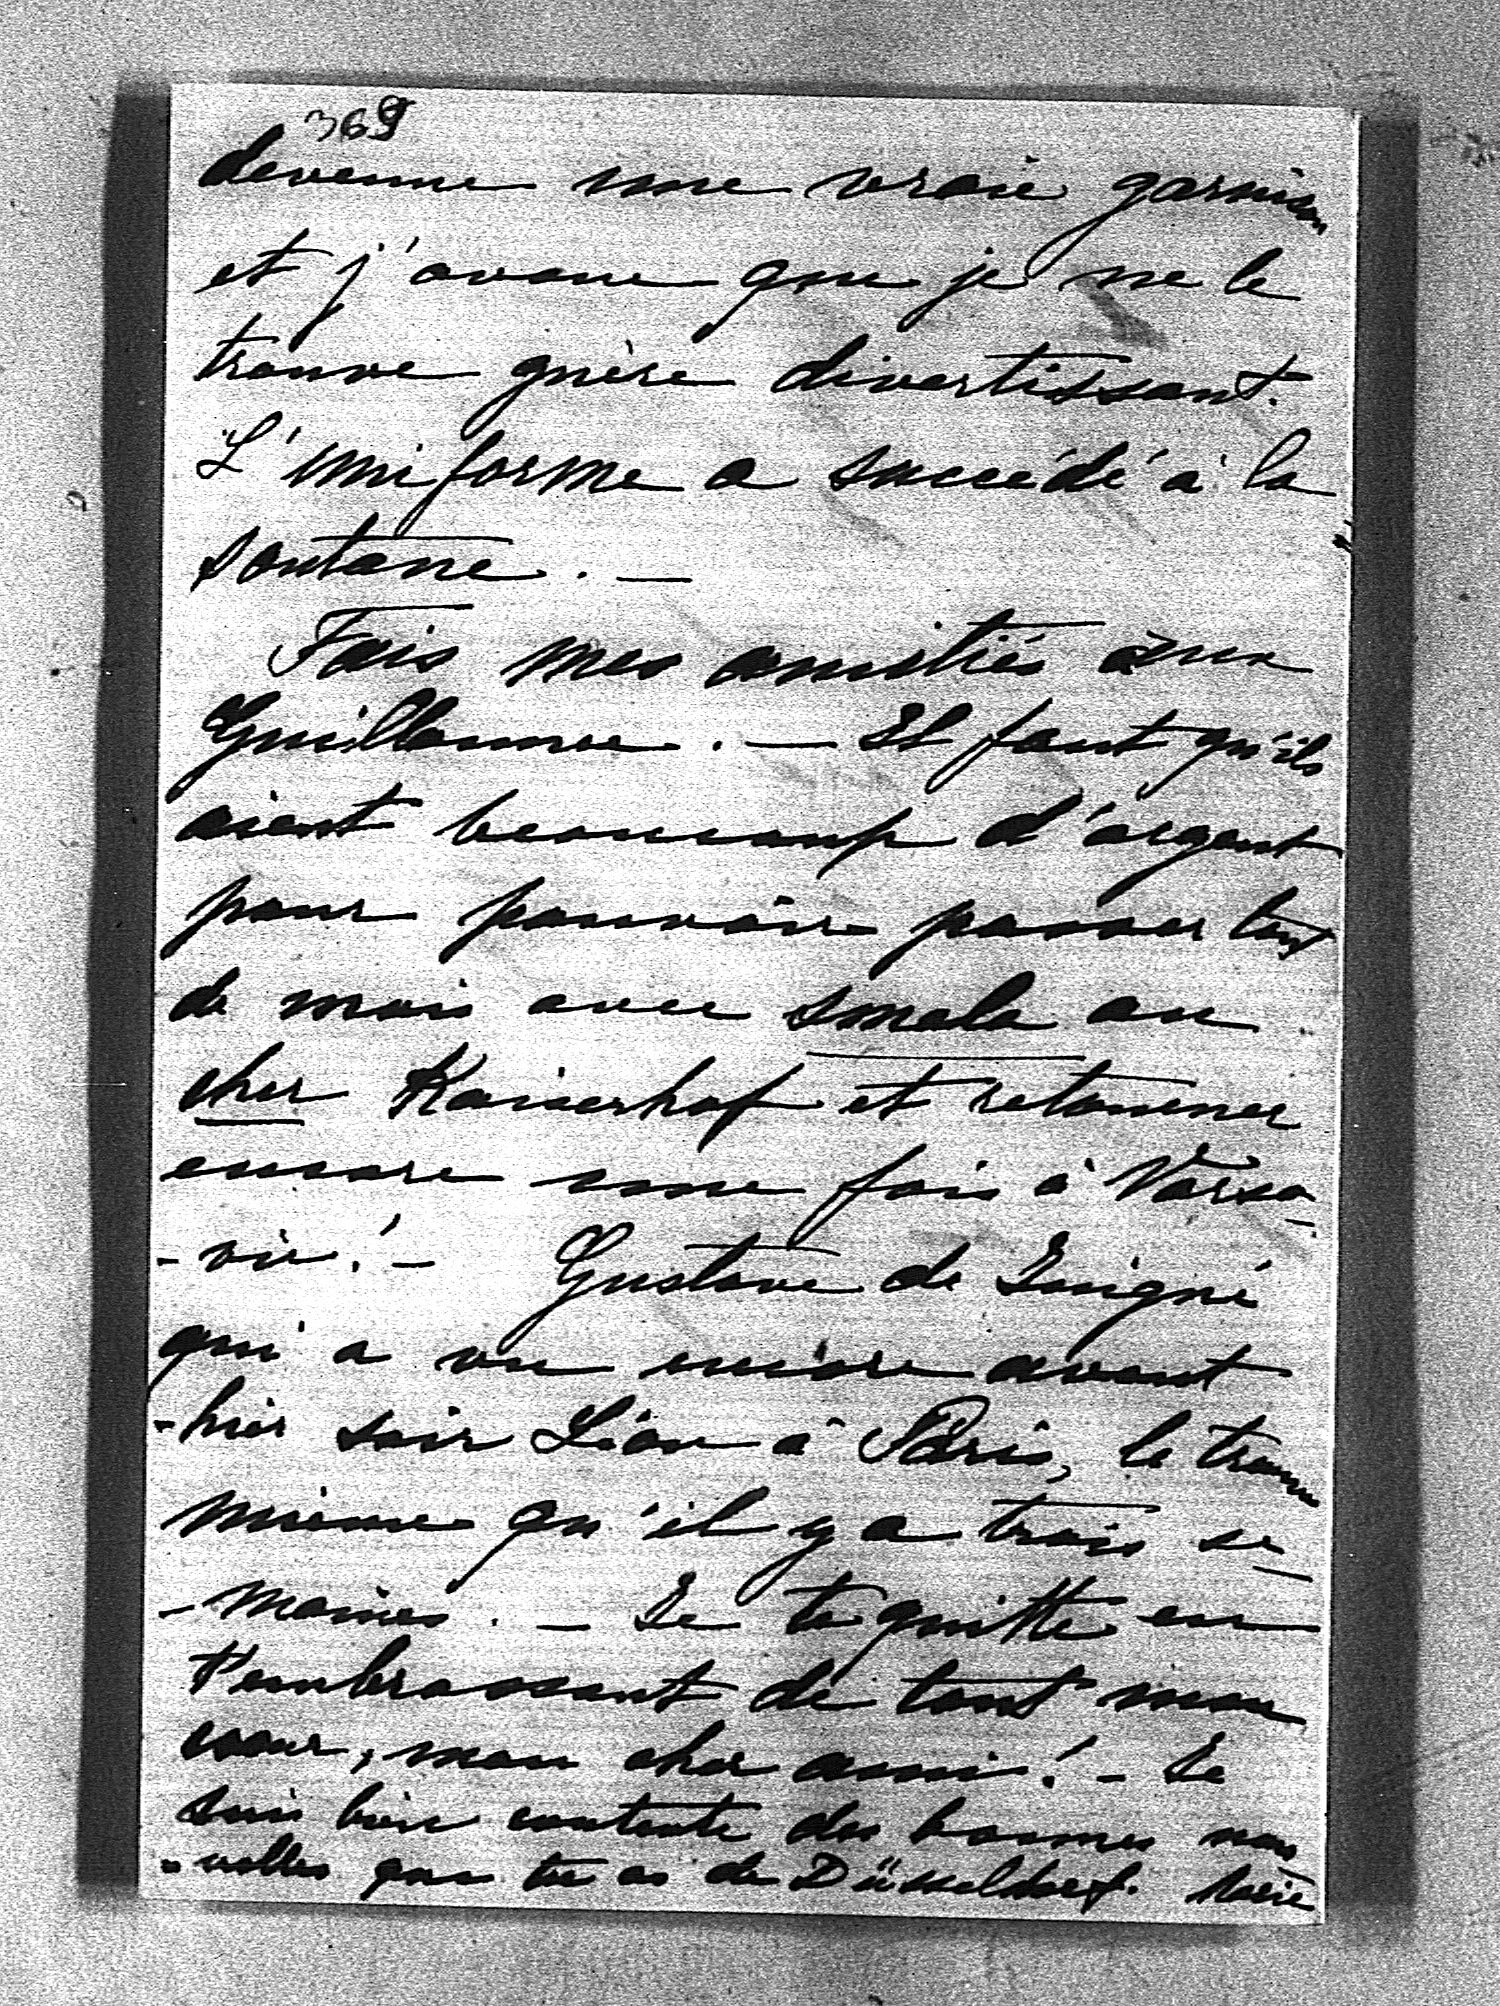 369
devenue une vraie garnison
et j'avoue que je ne le
trouve guère divertissant.
L'uniforme a succédé à la
soutane. —
Fais mes amitiés aux
Guillaume. — Il faut qu'ils
aient beaucoup d'argent
pour pouvoir passer tant
de mois avec smala au
cher Kaiserhof et retourner
encore une fois à Varso-
-vie! — Gustave de
qui a vu encore avant
-hier soir Léon à Paris, le trouve
mieux qu'il y a trois se-
-maines. — Je te quitte en
t'embrassant de tout mon
cœur, mon cher ami! — Je
suis bien contente des bonnes nou
-velles que tu as de Düsseldorf. Marie